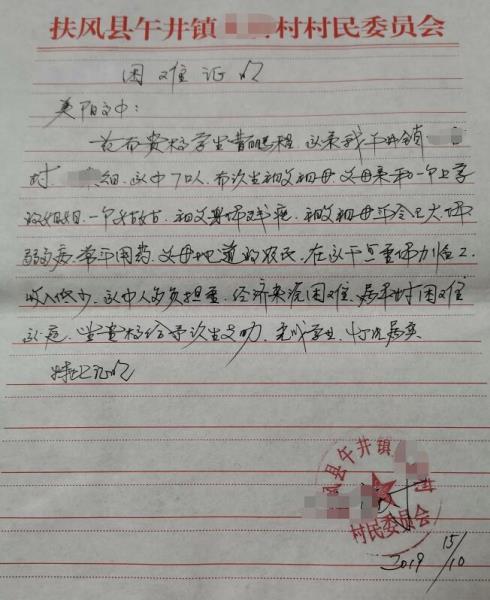 扶风县午井镇 村村民委员会
困难证明
美阳高中:
兹有贵校学生 鹏程,家系我午井镇
村 组,家中7口人,有该生祖父祖母、父母亲和一个上学
的姐姐、一个姑姑,祖父身体残疾,祖父祖母年令已大体
弱多病常年用药,父母地道的农民,在家干点重体力临工
收入低少,家中人多负担重,经济来源困难,属本村困难
家庭,望贵校给予该生支助,完成学业,情况属实
特此证明
扶风县午井镇 村
村民委员会
2019 15/10